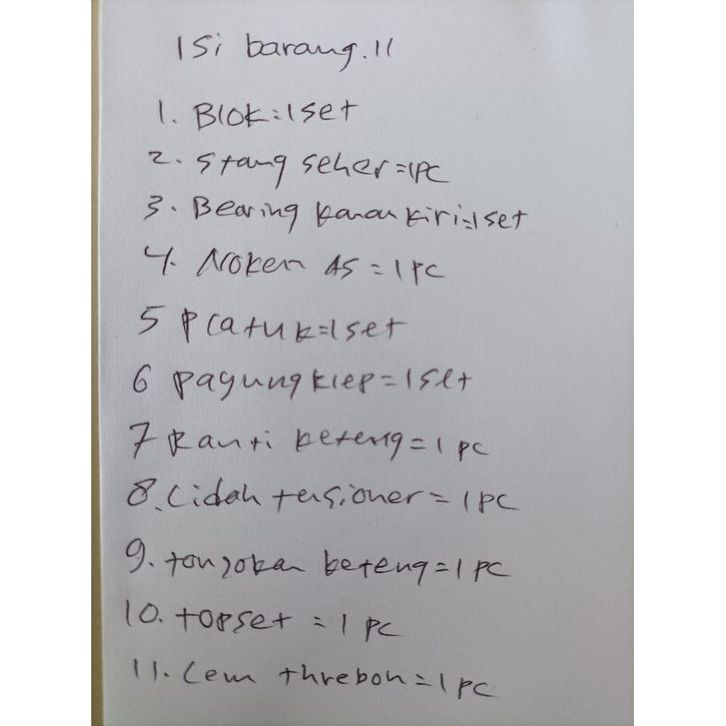 Isi barang.11
1. Blok=1set
2. stang seher=1PC
3. Bearing kanan kiri=1set
4. Noken AS=1PC
5 Platuk=1set
6 payung klep=1set
7 Ranti keteng=1 pc
8. Lidah tensioner=1PC
9. tonjokan keteng=1PC
10. topset=1PC
11. Lem threbon=1PC